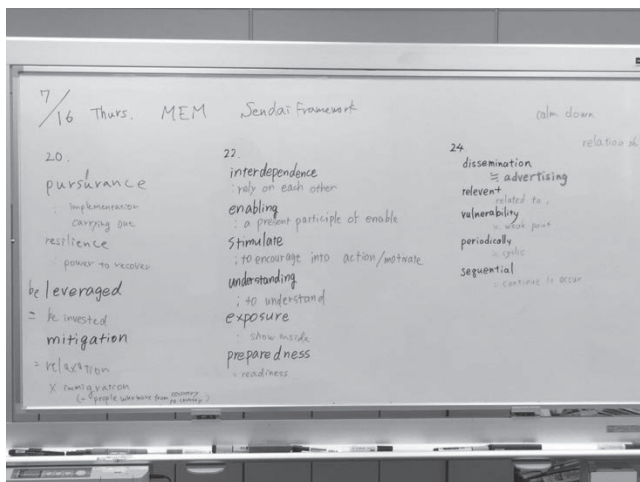 7/16 Thurs. MEM Sendai Framework
calm down
relation sh
20.
pursurance
: implementation
carrying out
resilience
: power to recover
be leveraged
= be invested
mitigation
= relaxation
× immigration
(= people who move from country to country)
22.
interdependence
: rely on each other
enabling
: a present participle of enable
stimulate
: to encourage into action/motivate
understanding
: to understand
exposure
: show inside
preparedness
= readiness
24
dissemination
≒ advertising
relevent
related to,
vulnerability
= weak point
periodically
= cyclic
sequential
= continue to occur